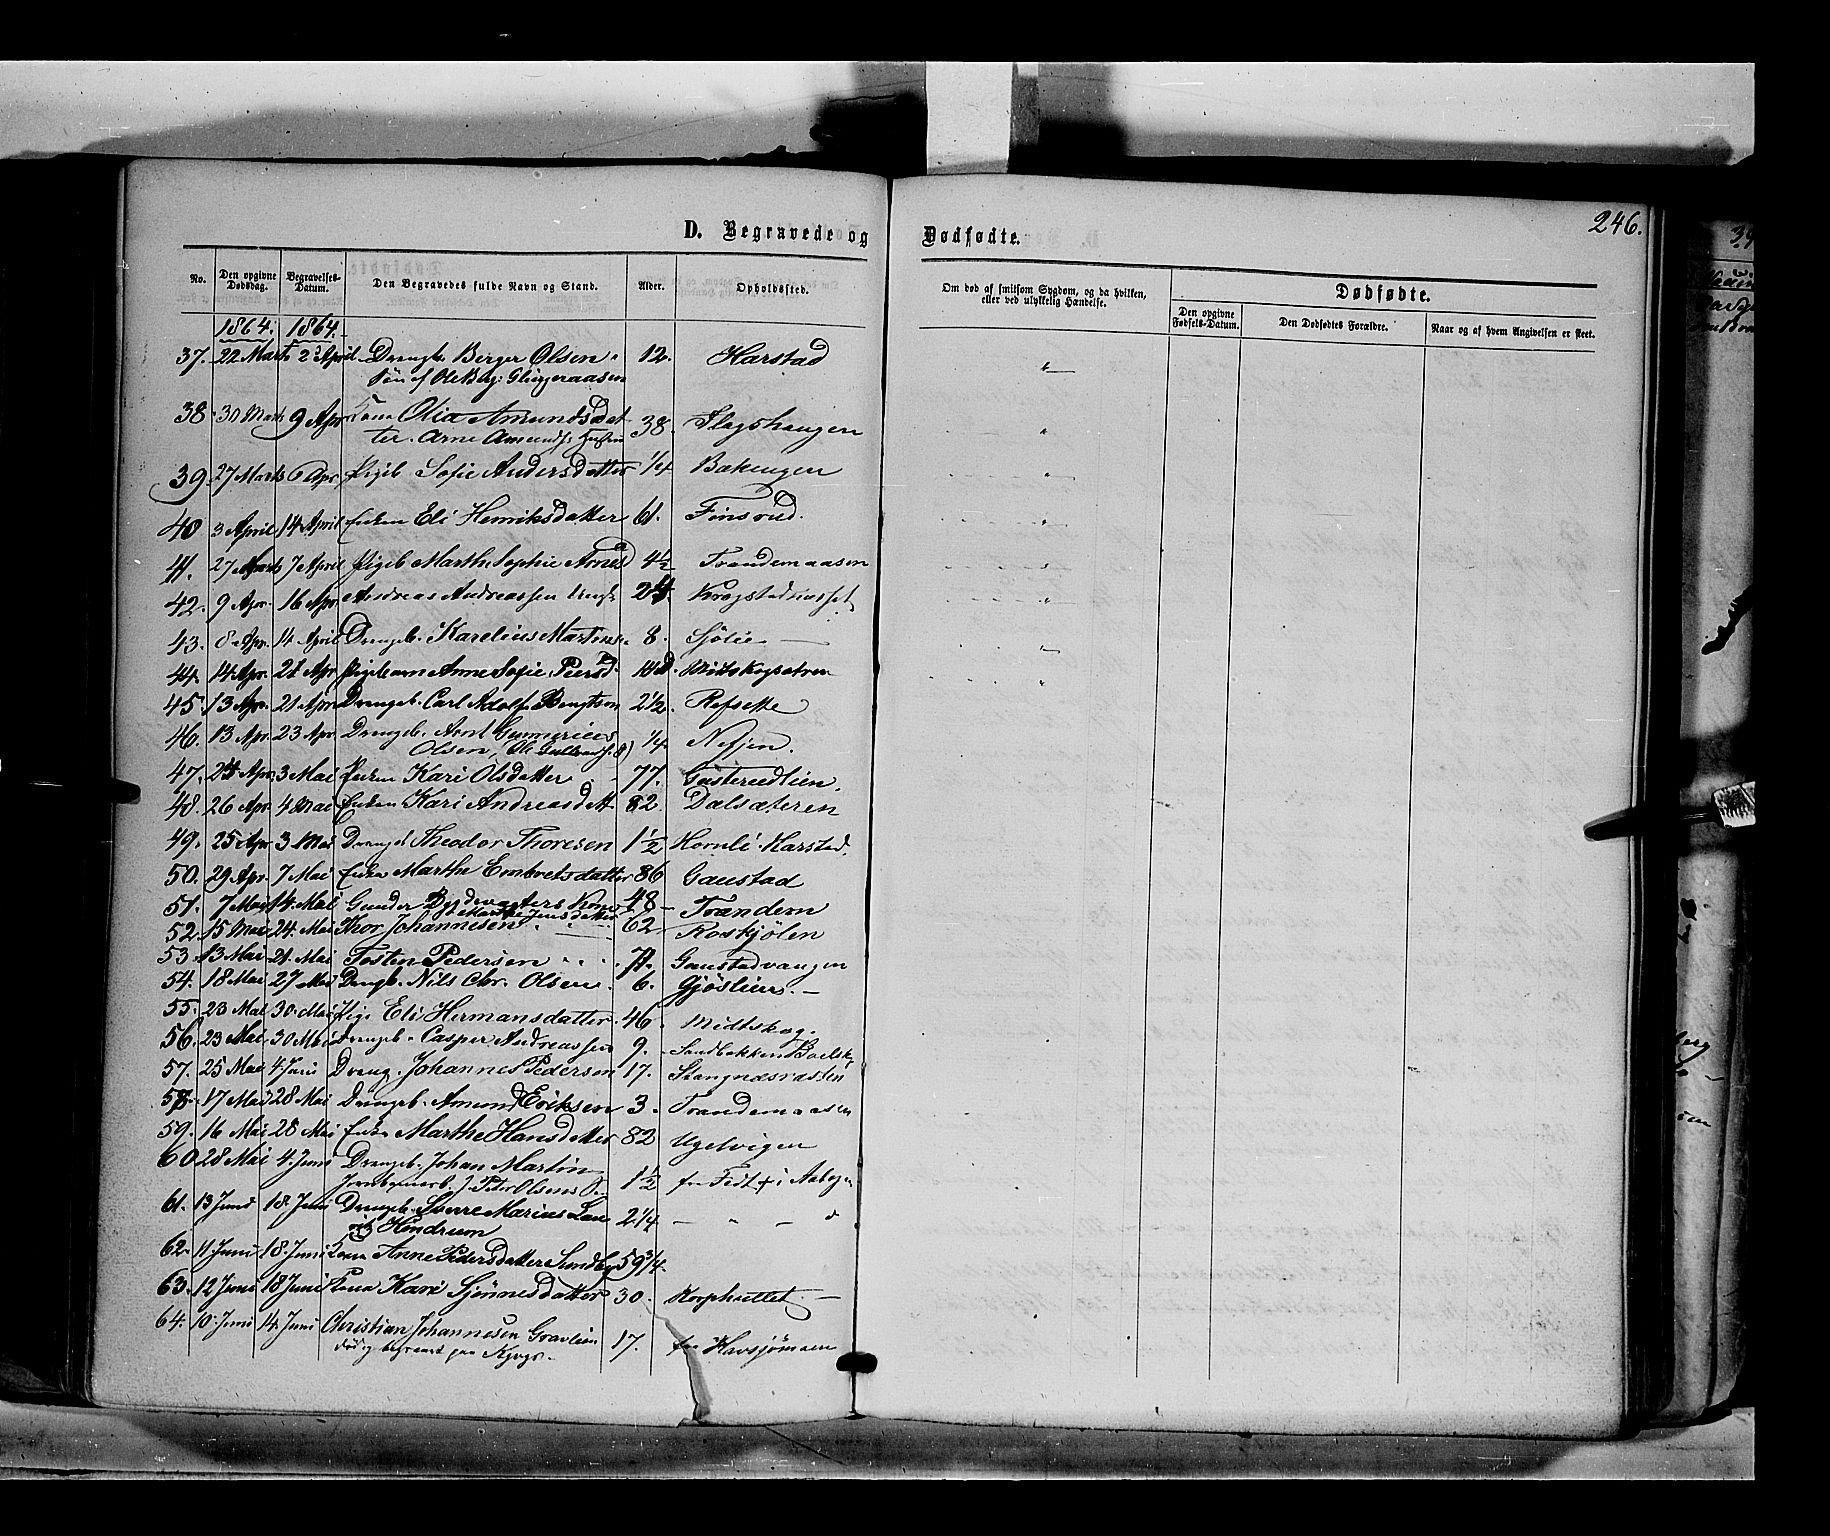 246.
D. Begravede og Dødfødte.
No. Den opgivne Dødsdag. Begravelses-Datum. Den Begravedes fulde Navn og Stand. Alder. Opholdssted. Om død af smitsom Sygdom, og da hvilken, eller ved ulykkelig Hændelse. Dødfødte.
Den opgivne Fødsels-Datum. Den Dødfødtes Forældre. Naar og af hvem Angivelsen er skeet.
1864. 1864.
37. 22 Marts 2 April Drengb. Berger Olsen 12. Harstad
Søn af Ole
38 30 Marts 9 Apr Kona Olia Amundsdat- 38. Slagshaugen
ter. Arne Amunds
39. 27 Marts 6 Apr. Pigeb Sofie Andersdatter 1/4 Bakengen
40 3 April 14 April Enken Eli Henriksdatter 61. Finsrud.
41. 27 Marts 7 April Pigeb Marth. Sophie Arnesd 4½ Trandemaasen
42. 9 Apr. 16 Apr Andreas Andreassen
43. 8 Apr. 14 April Drengeb. Karelius Martins. 8. Sjølie
44. 14 Apr. 21 Apr Pigebarn Anne Sofie Peersd. 14 d. Midtskogsetren
45. 13 Apr. 21 Apr Drengeb. Carl Adolf Bengtson 2½ Refsette
46. 13 Apr. 23 Apr Drengeb. Arnt Gunnerius 1/4. Nesjen.
Olsen,
47. 24 Apr. 3 Mai Enken Kari Olsdatter 77. Gusterudlien.
48. 26 Apr. 4 Mai Enken Kari Andreasdatt 82. Dalsæteren
49. 25 Apr 3 Mai Drengeb Theodor Thoresen 1½ Hornli Harstad.
50. 29 Apr. 7 Mai Enken Marthe Embretsdatter 86 Gaustad
51. 7 Mai 14 Mai Gunder Bydevægters Kone 48 Trandem
Marthe Jensdatter
52. 15 Mai 24. Mai Thor Johannesen 62 Roskjølen
53. 13 Mai 21 Mai Tosten Pedersen Gaustadvangen
54. 18 Mai 27 Mai Drengb. Nils Chr. Olsen 6. Gjøslien.
55. 23 Mai 30. Mai Pige Eli Hermansdatter 46. Midtskog.
56. 23 Mai 30 Mai Drengeb. Casper Andreassen 9. Sandbakken
57. 25 Mai 4 Juni Dreng. Johannes Pedersen 17. Stangnæsrasten
58. 17 Mai 28 Mai Drengeb. Amund Eriksen 3. Trandemaasen
59. 16 Mai 28 Mai Enke Marthe Hansdatter 82 Ugelvigen
60 28 Mai 4. Juni Drengeb. Johan Martin 1½ fra Fedt i
J. Peter Olsens S.
61. 13 Juni 18. Juni Drengeb. Sverre Marius 2¼
Hendrum
62. 11 Juni 18. Juni Kona Anne Pedersdatter Sundby 59¾.
63. 12 Juni 18 Juni Kona Kari Sjønnesdatter 30. Korphullet.
64. 10. Juni 14. Juni Christian Johannesen Gravlien 17. fra Havsjømoen
død og begravet paa